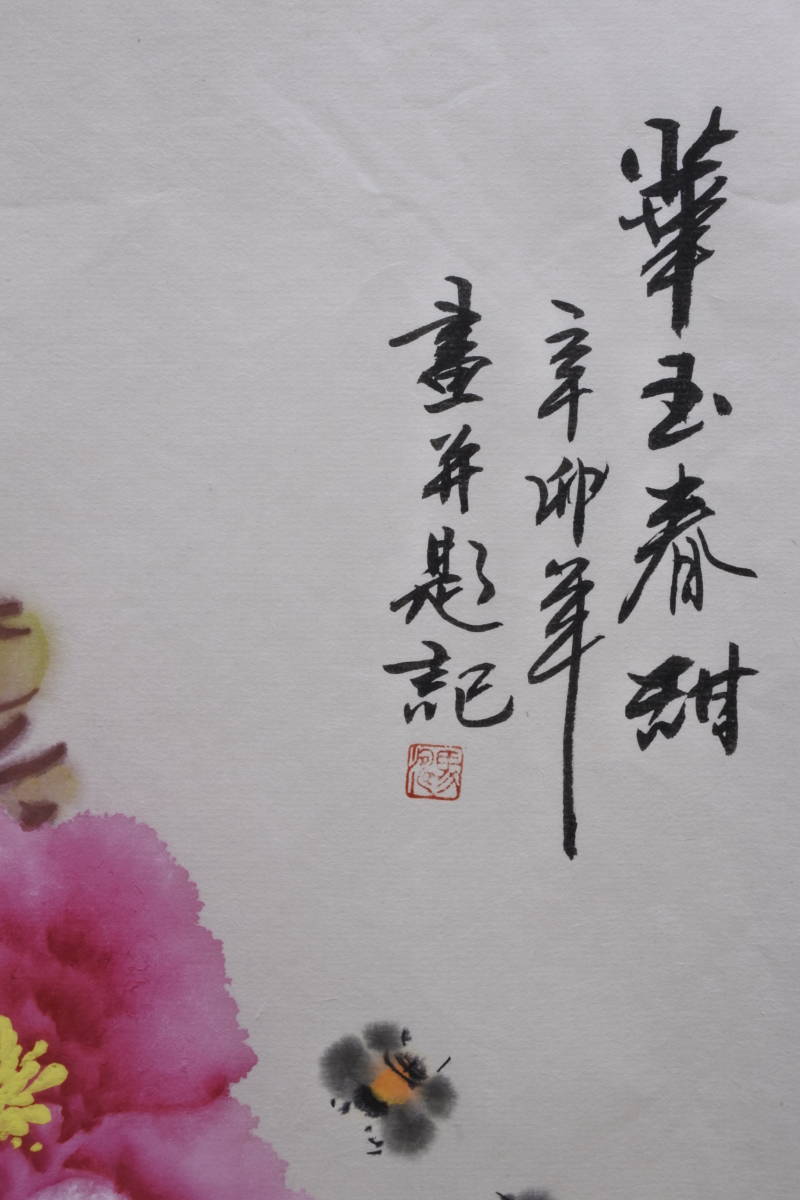 華玉春甜
辛卯年
畫并題記